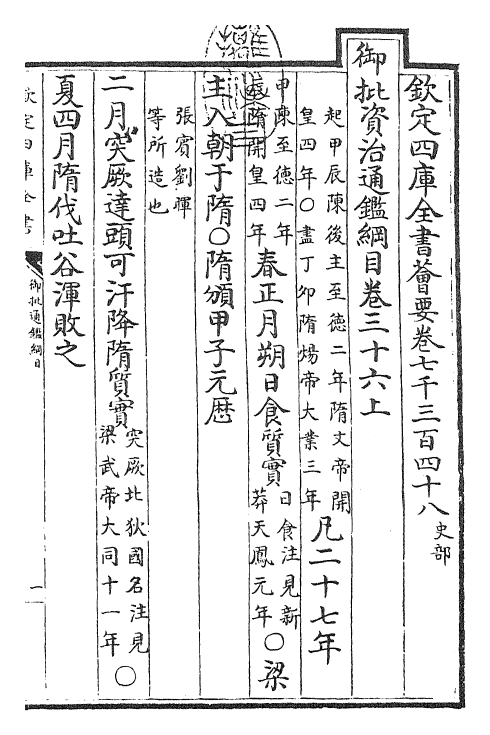 欽定四庫全書薈要卷七千三百四十八 史部
御批資治通鑑綱目卷三十六上
起甲辰陳後主至徳二年隋文帝開
皇四年○盡丁卯隋煬帝大業三年
凡二十七年
甲陳至徳二年
辰隋開皇四年
春正月朔日食質實
日食注見新
莽天鳳元年
○梁
主入朝于隋○隋頒甲子元厯
張賓劉暉
等所造也
二月突厥達頭可汗降隋質實
突厥北狄國名注見
梁武帝大同十一年
○
夏四月隋伐吐谷渾敗之
欽定四庫全書
御批通鑑綱目
一